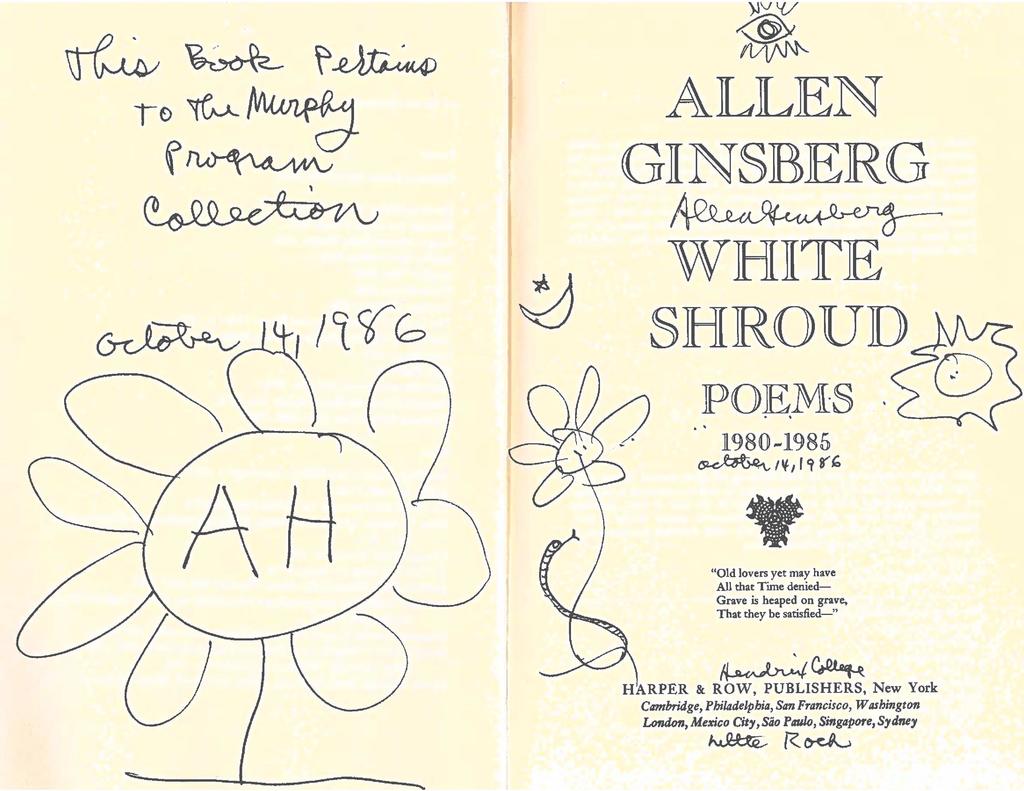 This Book Pertains
to the Murphy
Program
Collection
October 14, 1986
AH
ALLEN
GINSBERG
Allen Ginsberg
WHITE
SHROUD
POEMS
1980-1985
October 14, 1986
“Old lovers yet may have
All that Time denied—
Grave is heaped on grave,
That they be satisfied—”
Hendrix College
HARPER & ROW, PUBLISHERS, New York
Cambridge, Philadelphia, San Francisco, Washington
London, Mexico City, São Paulo, Singapore, Sydney
Little Rock